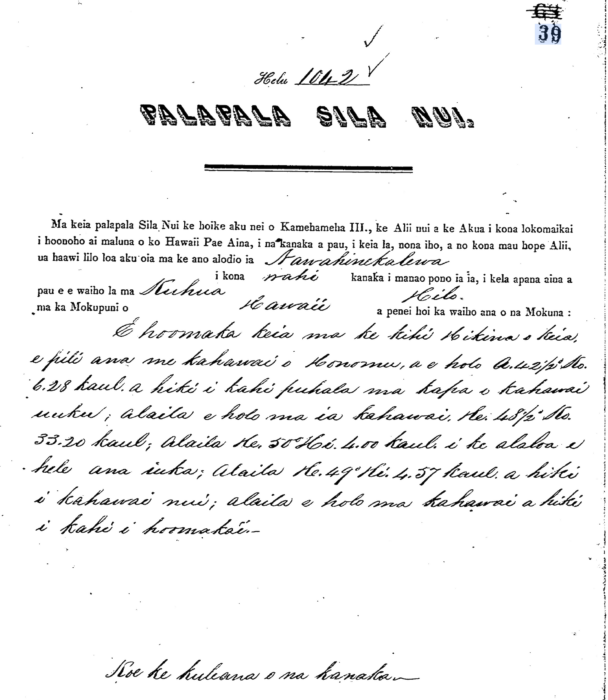 39
Helu 1042
PALAPALA SILA NUI.
Ma keia palapala Sila Nui ke hoike aku nei o Kamehameha III., ke Alii nui a ke Akua i kona lokomaikai
i hoonoho ai maluna o ko Hawaii Pae Aina, i na kanaka a pau, i keia la, nona iho, a no kona mau hope Alii,
ua haawi lilo loa aku oia ma ke ano alodio ia Nawahinekalewa
i kona wahi kanaka i manao pono ia ia, i kela apana aina a
pau e e waiho la ma Kuhua Hilo.
ma ka Mokupuni o Hawaii a penei hoi ka waiho ana o na Mokuna :
E hoomaka keia ma ke kihi Hikina o keia,
e pili ana me kahawai o Honomu, a e holo A. 42½° Ko.
6.28 kaul. a hiki i kahi puhala ma kapa o kahawai
uuku; alaila e holo ma ia kahawai, He. 48½° Ko.
33.20 kaul; alaila He. 50° Hi. 4.00 kaul. i ke alaloa e
hele ana iuka; alaila He. 49° Hi. 4.57 kaul. a hiki
i kahawai nui; alaila e holo ma kahawai a hiki
i kahi i hoomakai.—
Koe ke kuleana o na kanaka—